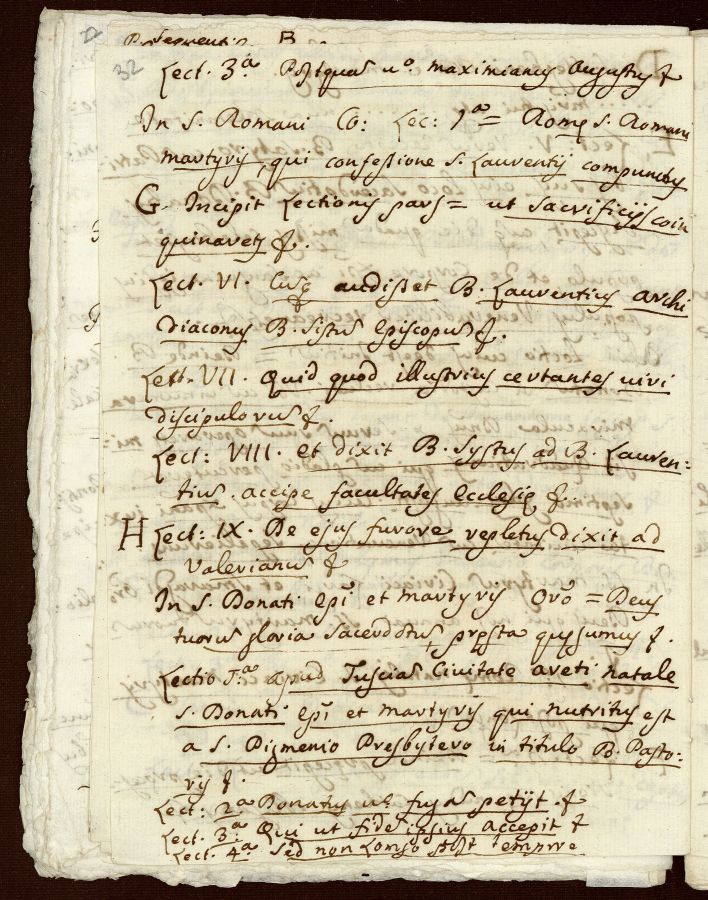 32
Lect. 3.ª Postquaʒ v.º maximianus Augustus &
In S. Romani Co: Lec: 1ª = Rome S. Romani
martyris, qui confessione S. Laurentij compunctus
G. Incipit Lectionis pars = ut sacrificijs coin
quinaret &.
Lect. VI. audisset B. Laurentius archi
diaconus B. Sistus Episcopus &.
Lect. VII. Quid quod illustrius certantes uiri
discipuloruʒ &.
Lect: VIII. et dixit B. Systus ad B. Lauren=
tiuʒ. accipe facultates Ecclesię &.
H Lect: IX. De ejus furore repletus dixit ad
Valerianuʒ &
In S. Donati Epi et martyris Oro = Deus
tuoruʒ gloria Sacerdotuʒ, pręsta quęsumus &.
Lectio J.ª apud Tusciaʒ Ciuitate areti natale
S. Donati Epi et martyris qui nutritus est
a S. Pigmenio Presbytero in titulo B. Pasto=
ris &.
Lect: 2ª Donatus petijt. &
Lect. 3.ª Qui ut accepit &
Lect. 4.ª Sed non longo post tempore